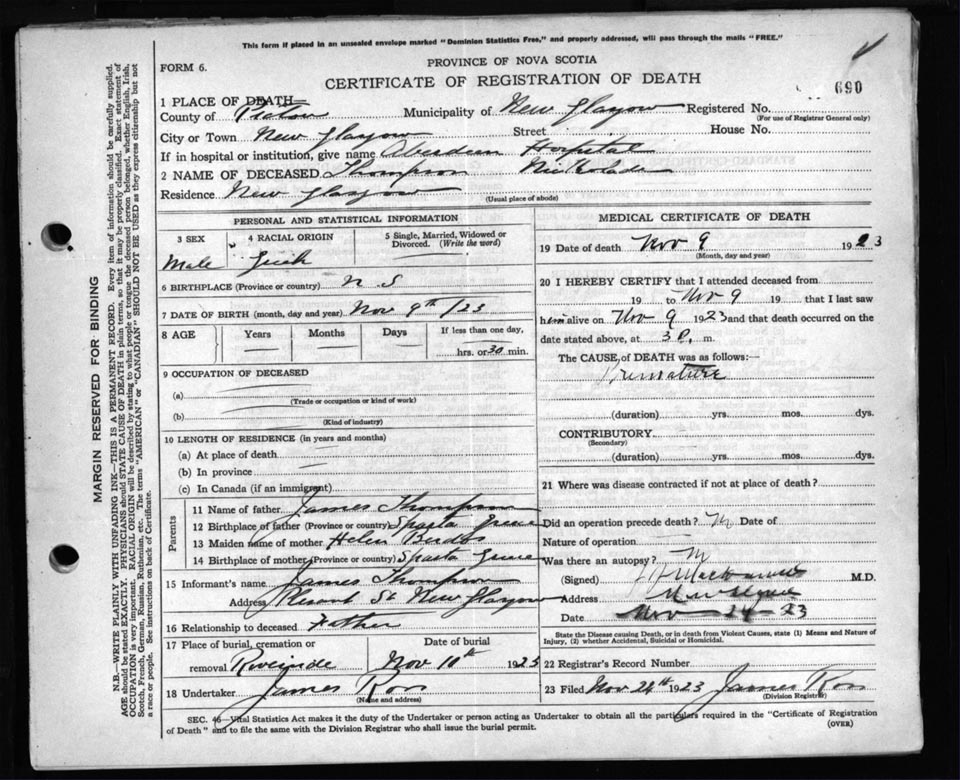 This form if placed in an unsealed envelope marked "Dominion Statistics Free," and properly addressed, will pass through the mails "FREE."
FORM 6.
PROVINCE OF NOVA SCOTIA
CERTIFICATE OF REGISTRATION OF DEATH
690
1 PLACE OF DEATH—
County of Pictou Municipality of New Glasgow Registered No.
(For use of Registrar General only)
City or Town New Glasgow Street House No.
If in hospital or institution, give name Aberdeen Hospital
2 NAME OF DECEASED Thompson
Residence New Glasgow
(Usual place of abode)
PERSONAL AND STATISTICAL INFORMATION
3 SEX 4 RACIAL ORIGIN 5 Single, Married, Widowed or Divorced. (Write the word)
Male Greek
6 BIRTHPLACE (Province or country) N S
7 DATE OF BIRTH (month, day and year) Nov 9th /23
8 AGE Years Months Days If less than one day,
hrs. or 30 min.
9 OCCUPATION OF DECEASED
(a)
(Trade or occupation or kind of work)
(b)
(Kind of industry)
10 LENGTH OF RESIDENCE (in years and months)
(a) At place of death
(b) In province
(c) In Canada (if an immigrant)
Parents
11 Name of father James Thompson
12 Birthplace of father (Province or country) Sparta Greece
13 Maiden name of mother Helen
14 Birthplace of mother (Province or country) Sparta Greece
15 Informant's name James Thompson
Address Pleasant St New Glasgow
16 Relationship to deceased Father
17 Place of burial, cremation or removal Riverside
Date of burial Nov 10th 1923
18 Undertaker James Ross
(Name and address)
MEDICAL CERTIFICATE OF DEATH
19 Date of death Nov 9 1923
(Month, day and year)
20 I HEREBY CERTIFY that I attended deceased from
19 to Nov 9 19 that I last saw
him alive on Nov 9 1923 and that death occurred on
date stated above, at 3 m.
The CAUSE of DEATH was as follows:—
Premature
(duration) yrs. mos. dys.
CONTRIBUTORY
(Secondary)
(duration) yrs. mos. dys.
21 Where was disease contracted if not at place of death?
Did an operation precede death? N Date of
Nature of operation
Was there an autopsy? N
(Signed) M.D.
Address New Glasgow
Date Nov 24 - 23
State the Disease causing Death, or in death from Violent Causes, state (1) Means and Nature of
Injury, (2) whether Accidental, Suicidal or Homicidal.
22 Registrar's Record Number
23 Filed Nov 24th 1923 James Ross
(Division Registrar)
SEC. 46—Vital Statistics Act makes it the duty of the Undertaker or person acting as Undertaker to obtain all the particulars required in the "Certificate of Registration
of Death" and to file the same with the Division Registrar who shall issue the burial permit.
(OVER)
MARGIN RESERVED FOR BINDING
N.B.—WRITE PLAINLY WITH UNFADING INK—THIS IS A PERMANENT RECORD. Every item of information should be carefully supplied.
AGE should be stated EXACTLY. PHYSICIANS should STATE CAUSE OF DEATH in plain terms, so that it may be properly classified. Exact statement of
OCCUPATION is very important. RACIAL ORIGIN will be described by stating to what people or tongue the deceased person belonged, whether English, Irish,
Scotch, French, German, Russian, Ruthenian, etc. The terms "AMERICAN" or "CANADIAN" SHOULD NOT BE USED as they express citizenship but not
a race or people. See instructions on back of Certificate.